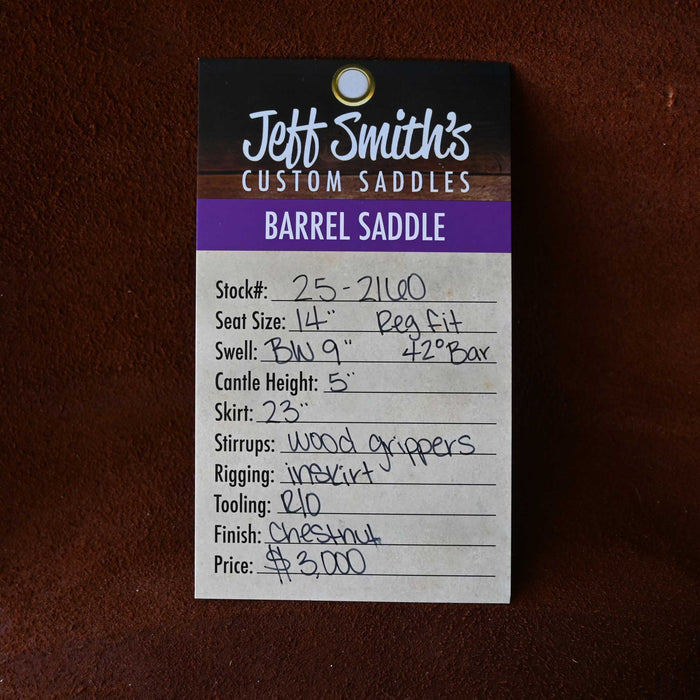 Jeff Smith's
CUSTOM SADDLES
BARREL SADDLE
Stock#: 25-2160
Seat Size: 14" Reg fit
Swell: BW 9" 42° Bar
Cantle Height: 5"
Skirt: 23"
Stirrups: wood grippers
Rigging: inskirt
Tooling: R/O
Finish: Chestnut
Price: $3,000